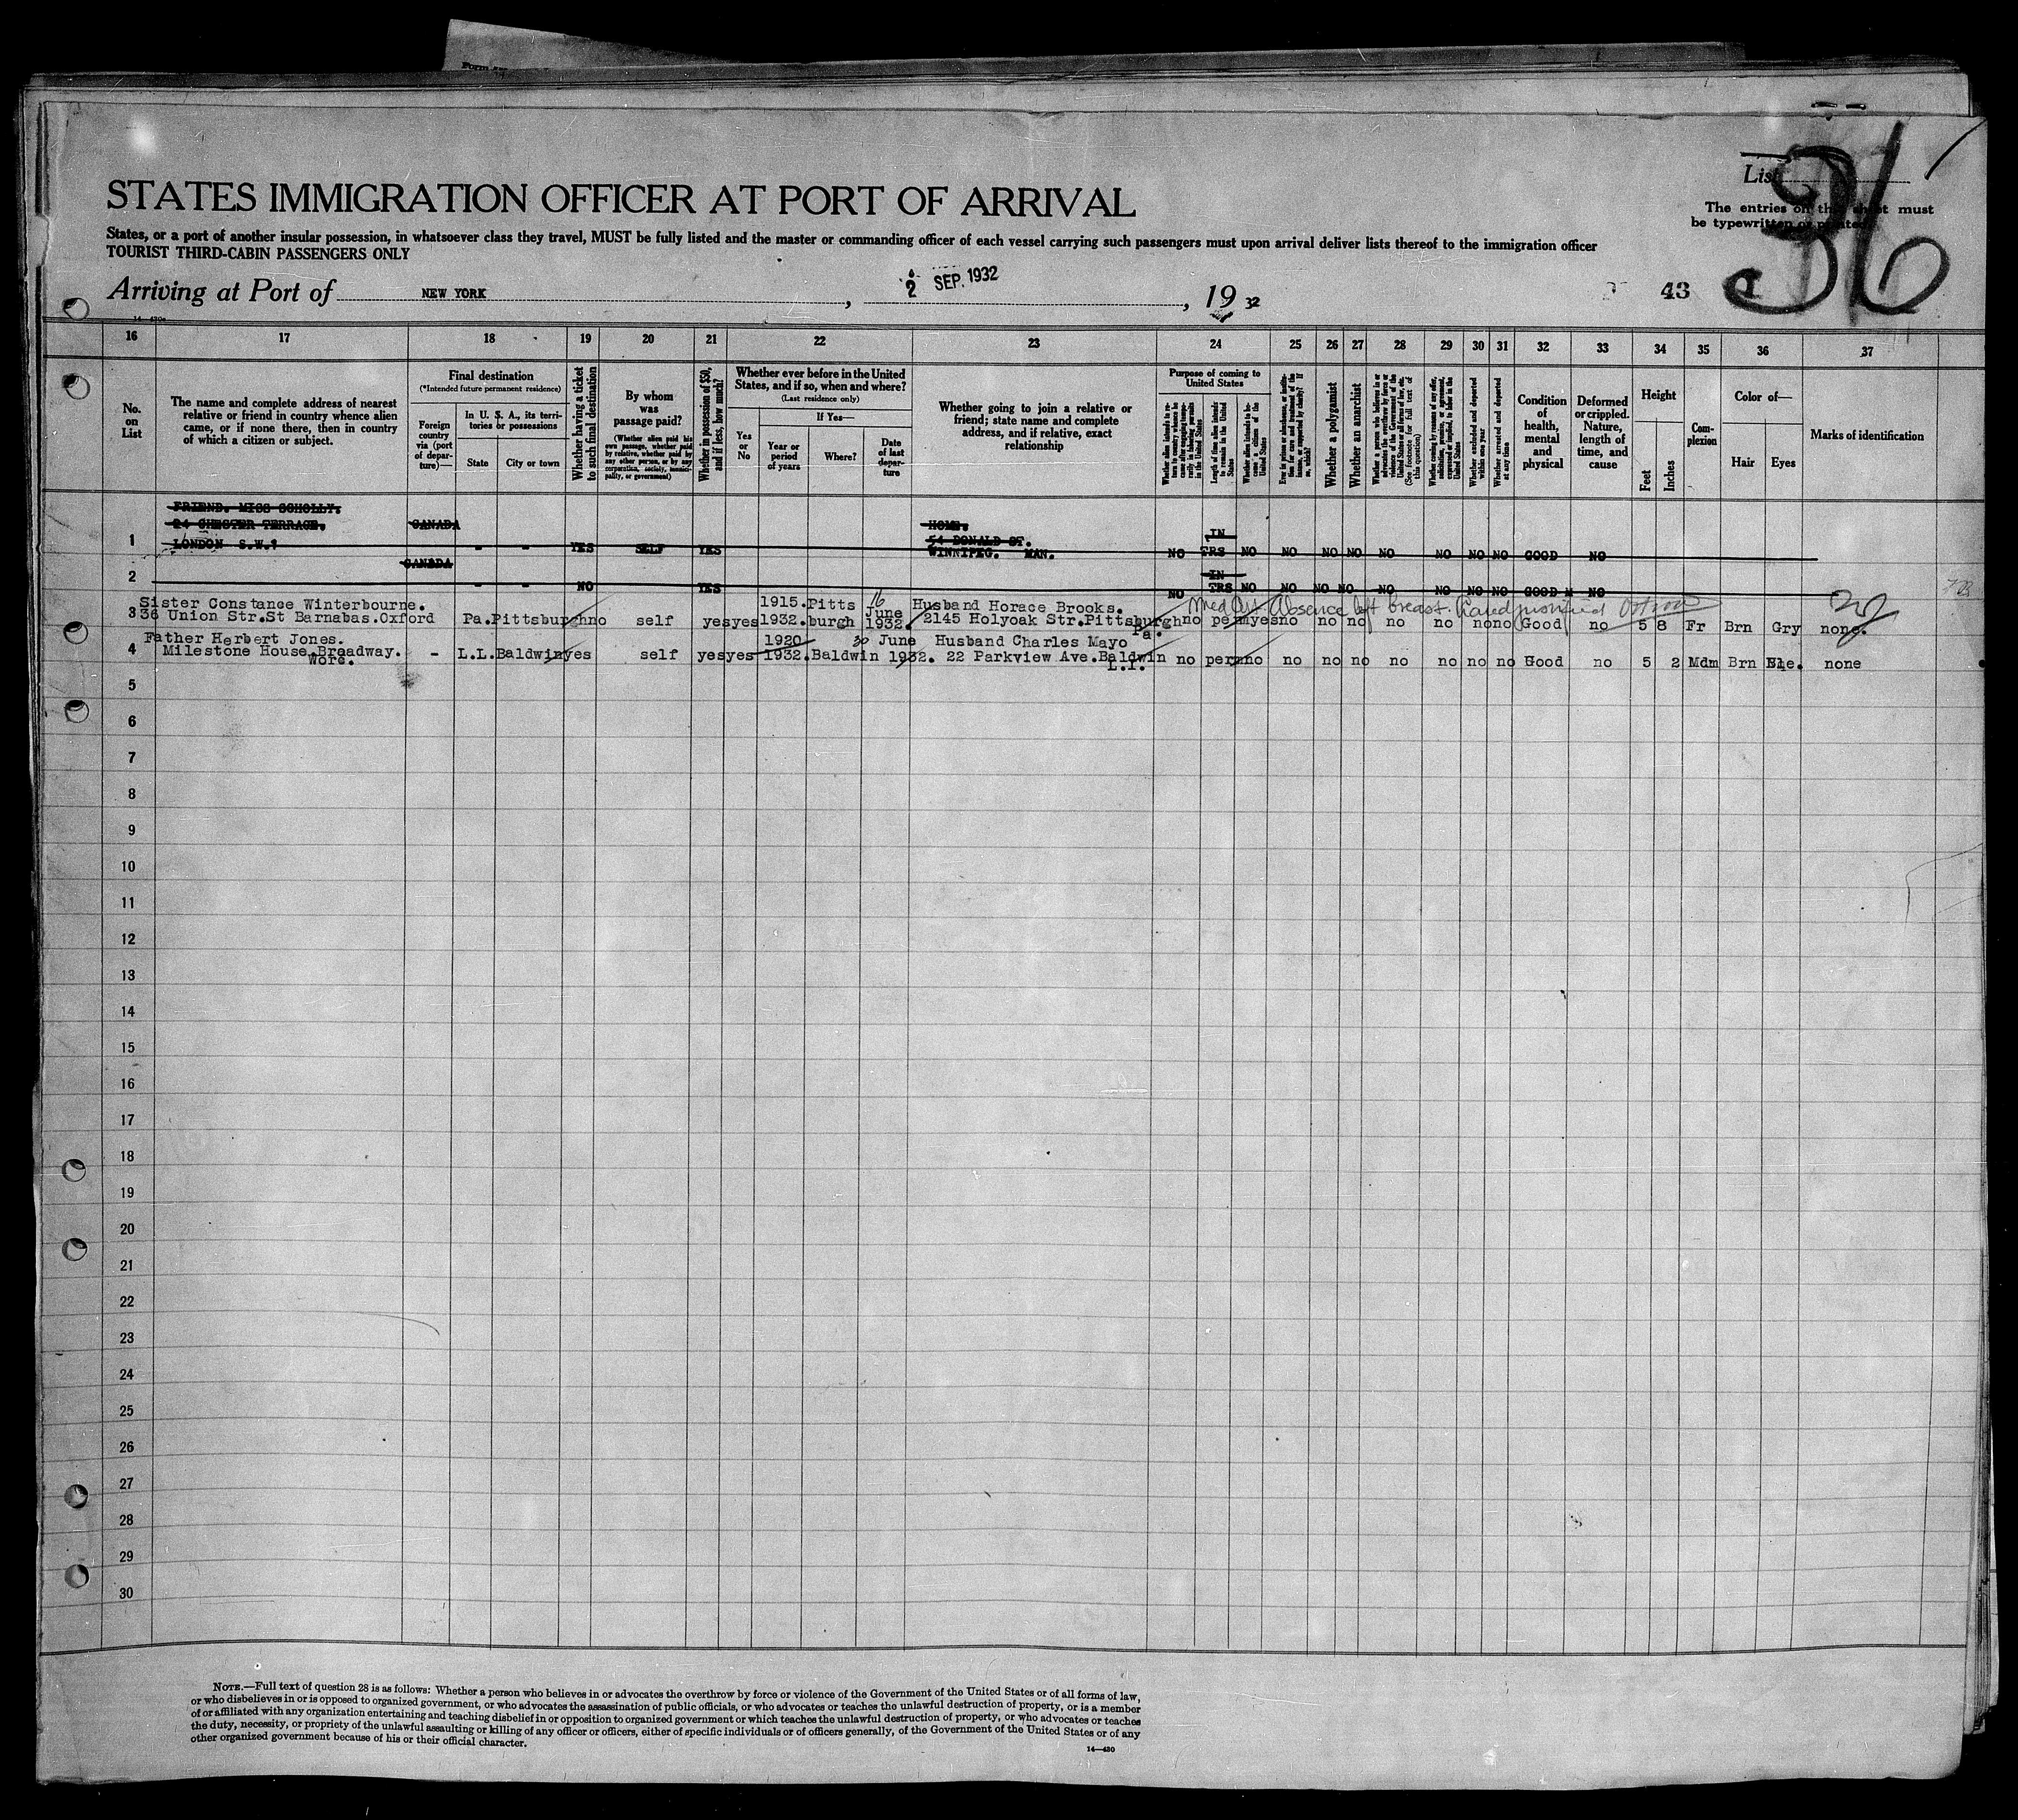 Form
STATES IMMIGRATION OFFICER AT PORT OF ARRIVAL
List
The entries on this sheet must
be typewritten or printed
36
States, or a port of another insular possession, in whatsoever class they travel, MUST be fully listed and the master or commanding officer of each vessel carrying such passengers must upon arrival deliver lists thereof to the immigration officer
TOURIST THIRD-CABIN PASSENGERS ONLY
Arriving at Port of NEW YORK, 2 SEP. 1932, 19 32
43
16 17 18 19 20 21 22 23 24 25 26 27 28 29 30 31 32 33 34 35 36 37
No. on List
The name and complete address of nearest
relative or friend in country whence alien
came, or if none there, then in country
of which a citizen or subject.
Final destination
(*Intended future permanent residence)
Foreign country via (port of departure)—
In U. S. A., its territories or possessions
State
City or town
Whether having a ticket to such final destination
By whom was passage paid?
(Whether alien paid his own passage, whether paid by relative, whether paid by any other person, or by any corporation, society, municipality, or government)
Whether in possession of $50, and if less, how much?
Whether ever before in the United States, and if so, when and where?
(Last residence only)
Yes or No
If Yes—
Year or period of years
Where?
Date of last departure
Whether going to join a relative or
friend; state name and complete
address, and if relative, exact
relationship
Purpose of coming to United States
Length of time alien intends to remain in the United States
Whether alien intends to become a citizen of the United States
Whether a polygamist
Whether an anarchist
(See footnote for full text of this question)
Whether excluded and deported within one year
Whether arrested and deported at any time
Condition of health, mental and physical
Deformed or crippled. Nature, length of time, and cause
Height
Feet
Inches
Complexion
Color of—
Hair
Eyes
Marks of identification
FRIEND. MISS SCHOLLY.
24 CHESTER TERRACE. CANADA HOME. IN
1 LONDON S.W.1 - - YES SELF YES 54 DONALD ST. WINNIPEG. MAN. NO TRS NO NO NO NO NO NO NO NO GOOD NO
CANADA IN
2 - - NO YES NO TRS NO NO NO NO NO NO NO NO GOOD NO
Sister Constance Winterbourne. 1915. Pitts 16 June Husband Horace Brooks. Med Cert Absence left breast.
3 36 Union Str.St Barnabas.Oxford Pa. Pittsburgh no self yes yes 1932. burgh 1932. 2145 Holyoak Str.Pittsburgh Pa. no perm yes no no no no no no no Good no 5 8 Fr Brn Gry none.
Father Herbert Jones. 1920 30 June Husband Charles Mayo
4 Milestone House.Broadway. Worc. - L.L. Baldwin yes self yes yes 1932. Baldwin 1932. 22 Parkview Ave.Baldwin L.I. no perm no no no no no no no no Good no 5 2 Mdm Brn Ble. none
5
6
7
8
9
10
11
12
13
14
15
16
17
18
19
20
21
22
23
24
25
26
27
28
29
30
NOTE.—Full text of question 28 is as follows: Whether a person who believes in or advocates the overthrow by force or violence of the Government of the United States or of all forms of law,
or who disbelieves in or is opposed to organized government, or who advocates the assassination of public officials, or who advocates or teaches the unlawful destruction of property, or is a member
of or affiliated with any organization entertaining and teaching disbelief in or opposition to organized government or which teaches the unlawful destruction of property, or who advocates or teaches
the duty, necessity, or propriety of the unlawful assaulting or killing of any officer or officers, either of specific individuals or of officers generally, of the Government of the United States or of any
other organized government because of his or their official character.
14—430